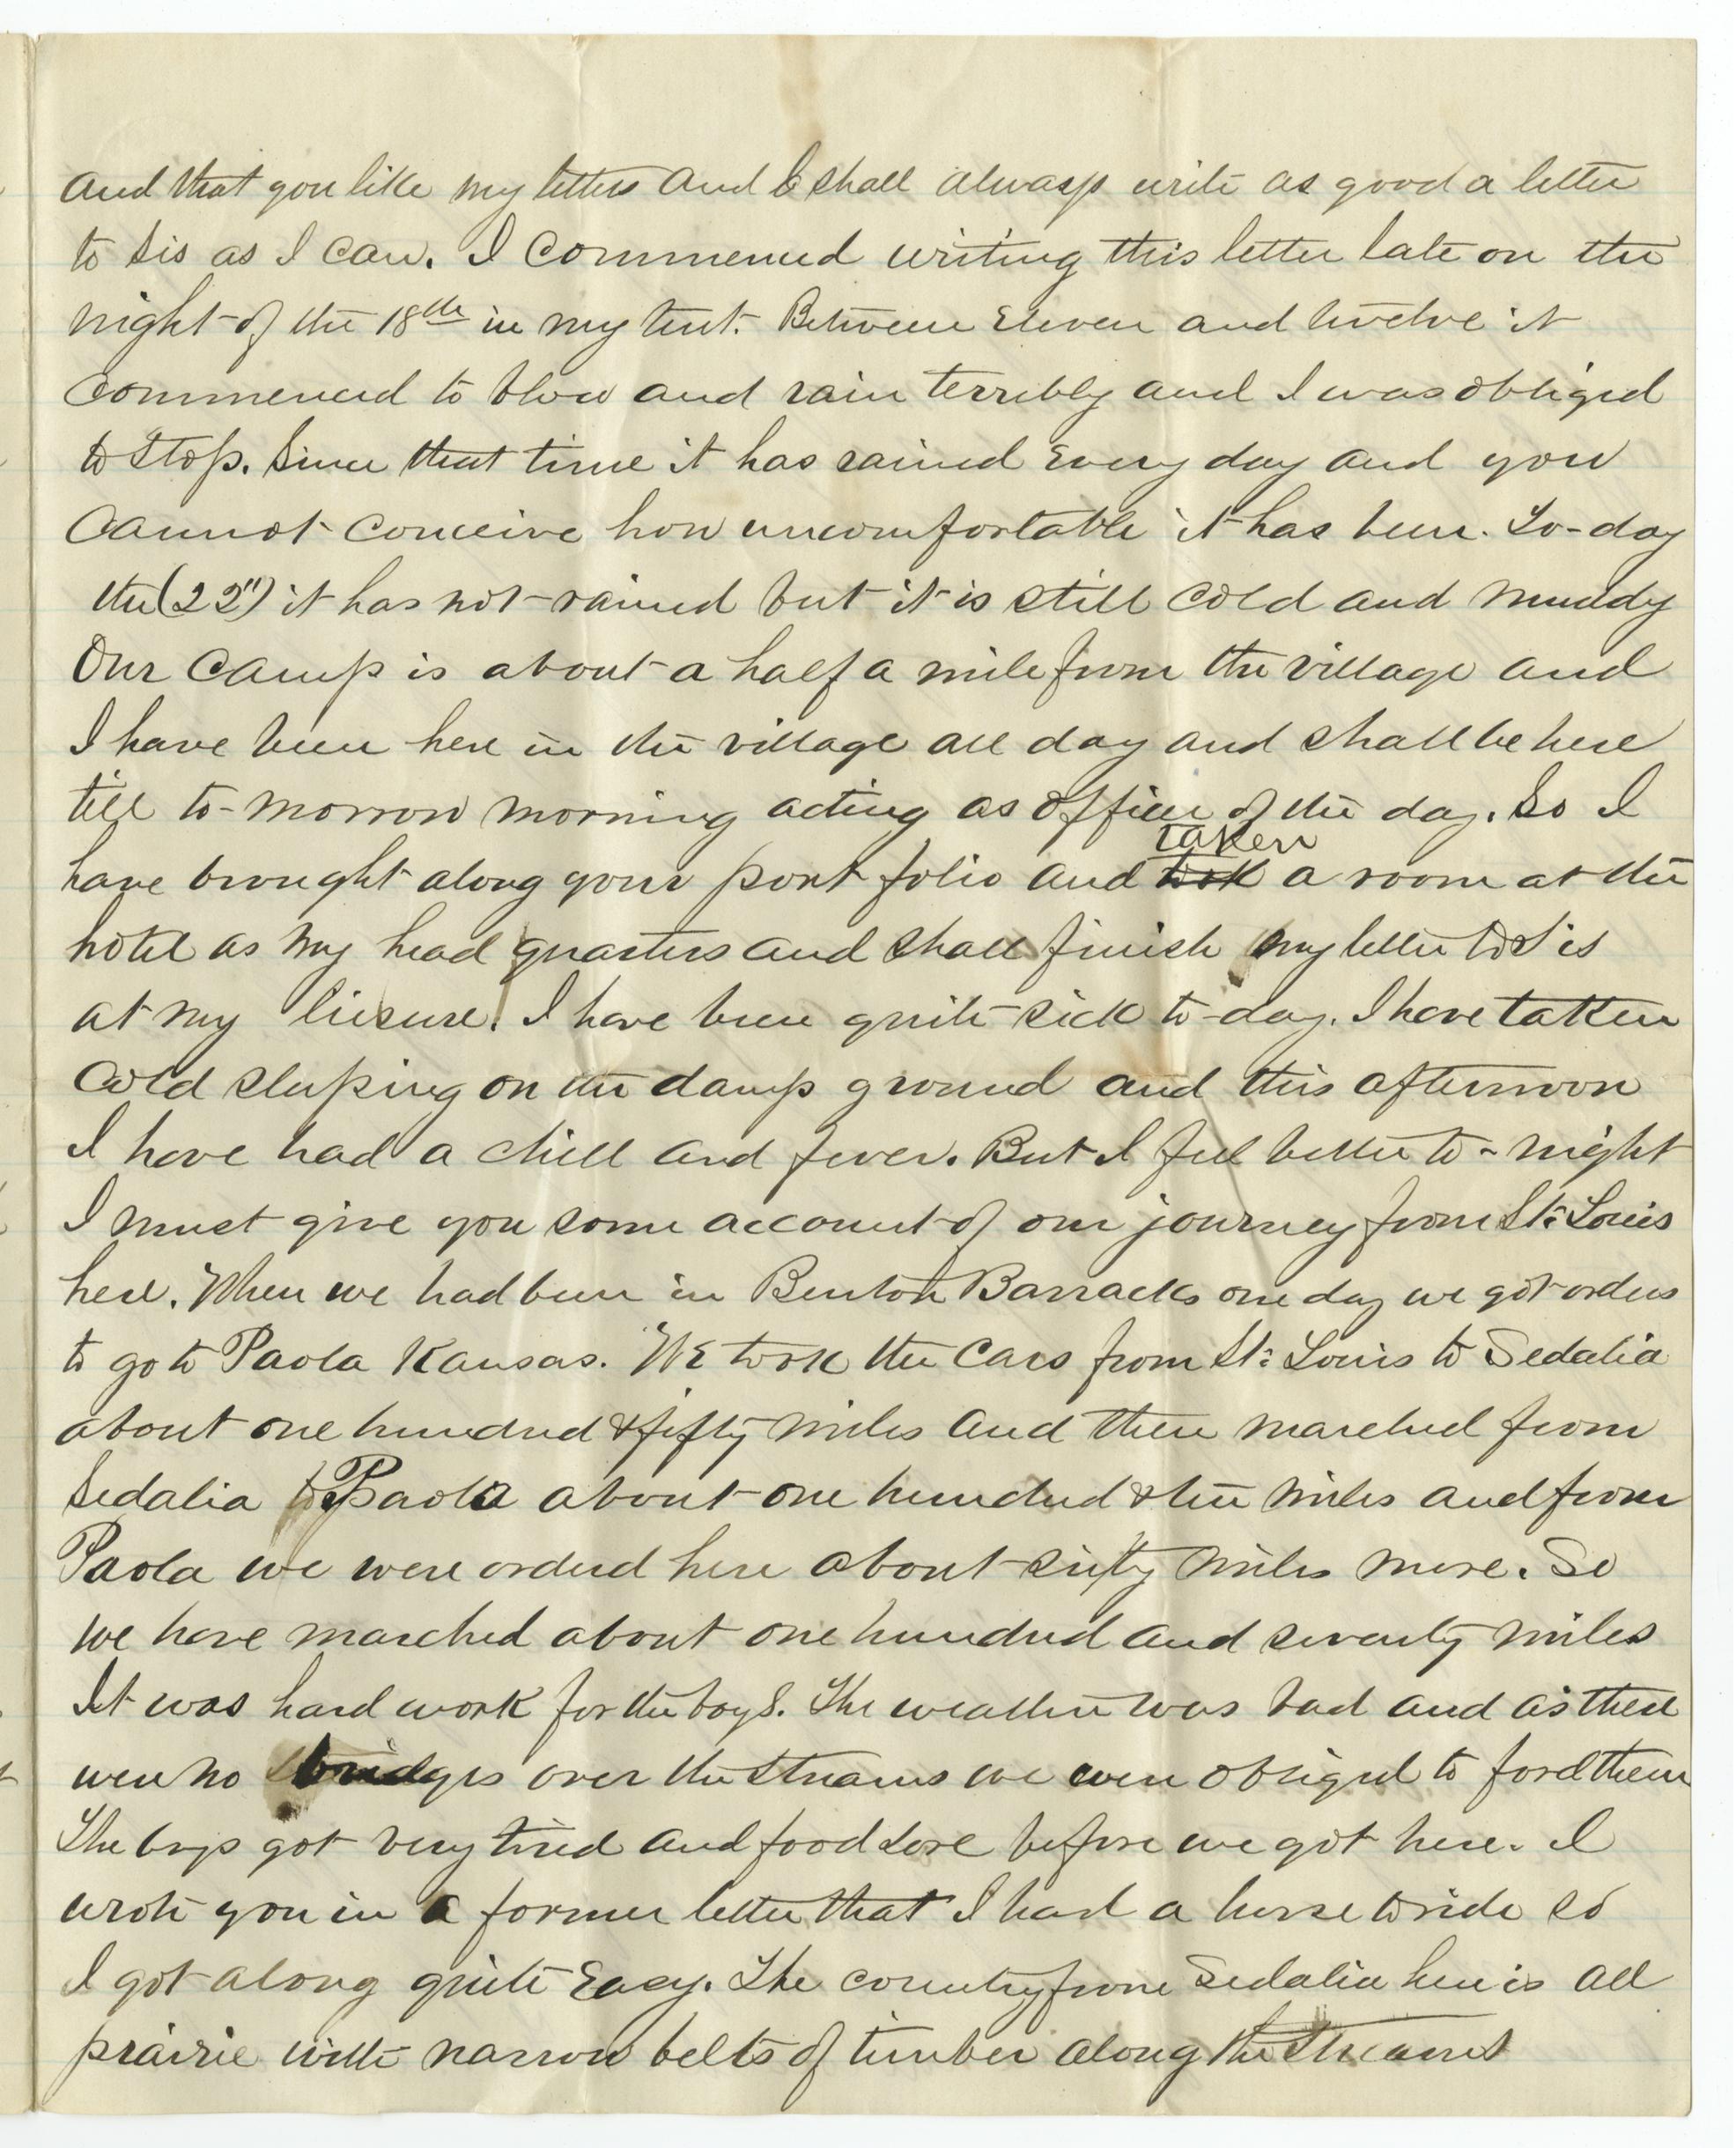 and that you like my letters and I shall alwasp write as good a letter
to Sis as I can. I commenced writing this letter late on the
night of the 18th in my tent. Between Eleven and twelve it
commenced to blow and rain terribly and I was obliged
to stop. Since that time it has rained Every day and you
cannot conceive how uncomfortable it has been. To-day
the (22") it has not rained but it is still cold and muddy
Our camp is about a half a mile from the village and
I have been here in the village all day and shall be here
till to-morrow morning acting as officer of the day. So I
taken
have brought along your port folio and took a room at the
hotel as my head quarters and shall finish my letter to Sis
at my liesure. I have been quite sick to-day. I have taken
cold sleeping on the damp ground and this afternoon
I have had a chill and fever. But I feel better to-night
I must give you some account of our journey from St: Louis
here. When we had been in Benton Barracks one day we got orders
to go to Paola Kansas. We took the cars from St: Louis to Sedalia
about one hundred & fifty miles and then marched from
Sedalia to Paola about one hundred & ten miles and from
Paola we were ordered here about sixty miles more. So
we have marched about one hundred and seventy miles
It was hard work for the boys. The weather was bad and as there
were no bridges over the streams we were obliged to ford them
The boys got very tired and food sore before we got here. I
wrote you in a former letter that I had a horse to ride so
I got along quite Easy. The country from Sedalia here is all
prairie with narrow belts of timber along the streams